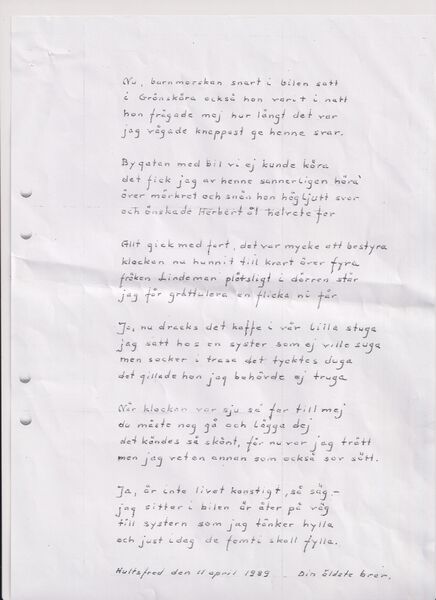 Nu, barnmorskan snart i bilen satt
i Grönskåra också hon varit i natt
hon frågade mej hur långt det var
jag vågade knappast ge henne svar.
Bygatan med bil vi ej kunde köra
det fick jag av henne sannerligen höra
över mörkret och snön hon högljutt svor
och önskade Herbert åt helvete for
Allt gick med fart, det var mycke att bestyra
klockan nu hunnit till kvart över fyra
fröken Lindeman plötsligt i dörren står
jag får grattulera en flicka ni får
Ja, nu dracks det kaffe i vår lilla stuga
jag satt hos en syster som ej ville suga
men socker i trasa det tycktes duga
det gillade hon jag behövde ej truga
När klockan var sju sa far till mej
du måste nog gå och lägga dej
det kändes så skönt, för nu var jag trött
men jag vet en annan som också sov sött.
Ja, är inte livet konstigt, så säg -
jag sitter i bilen är åter på väg
till systern som jag tänker hylla
och just idag de femti skall fylla.
Hultsfred den 11 april 1989 - Din äldste bror.